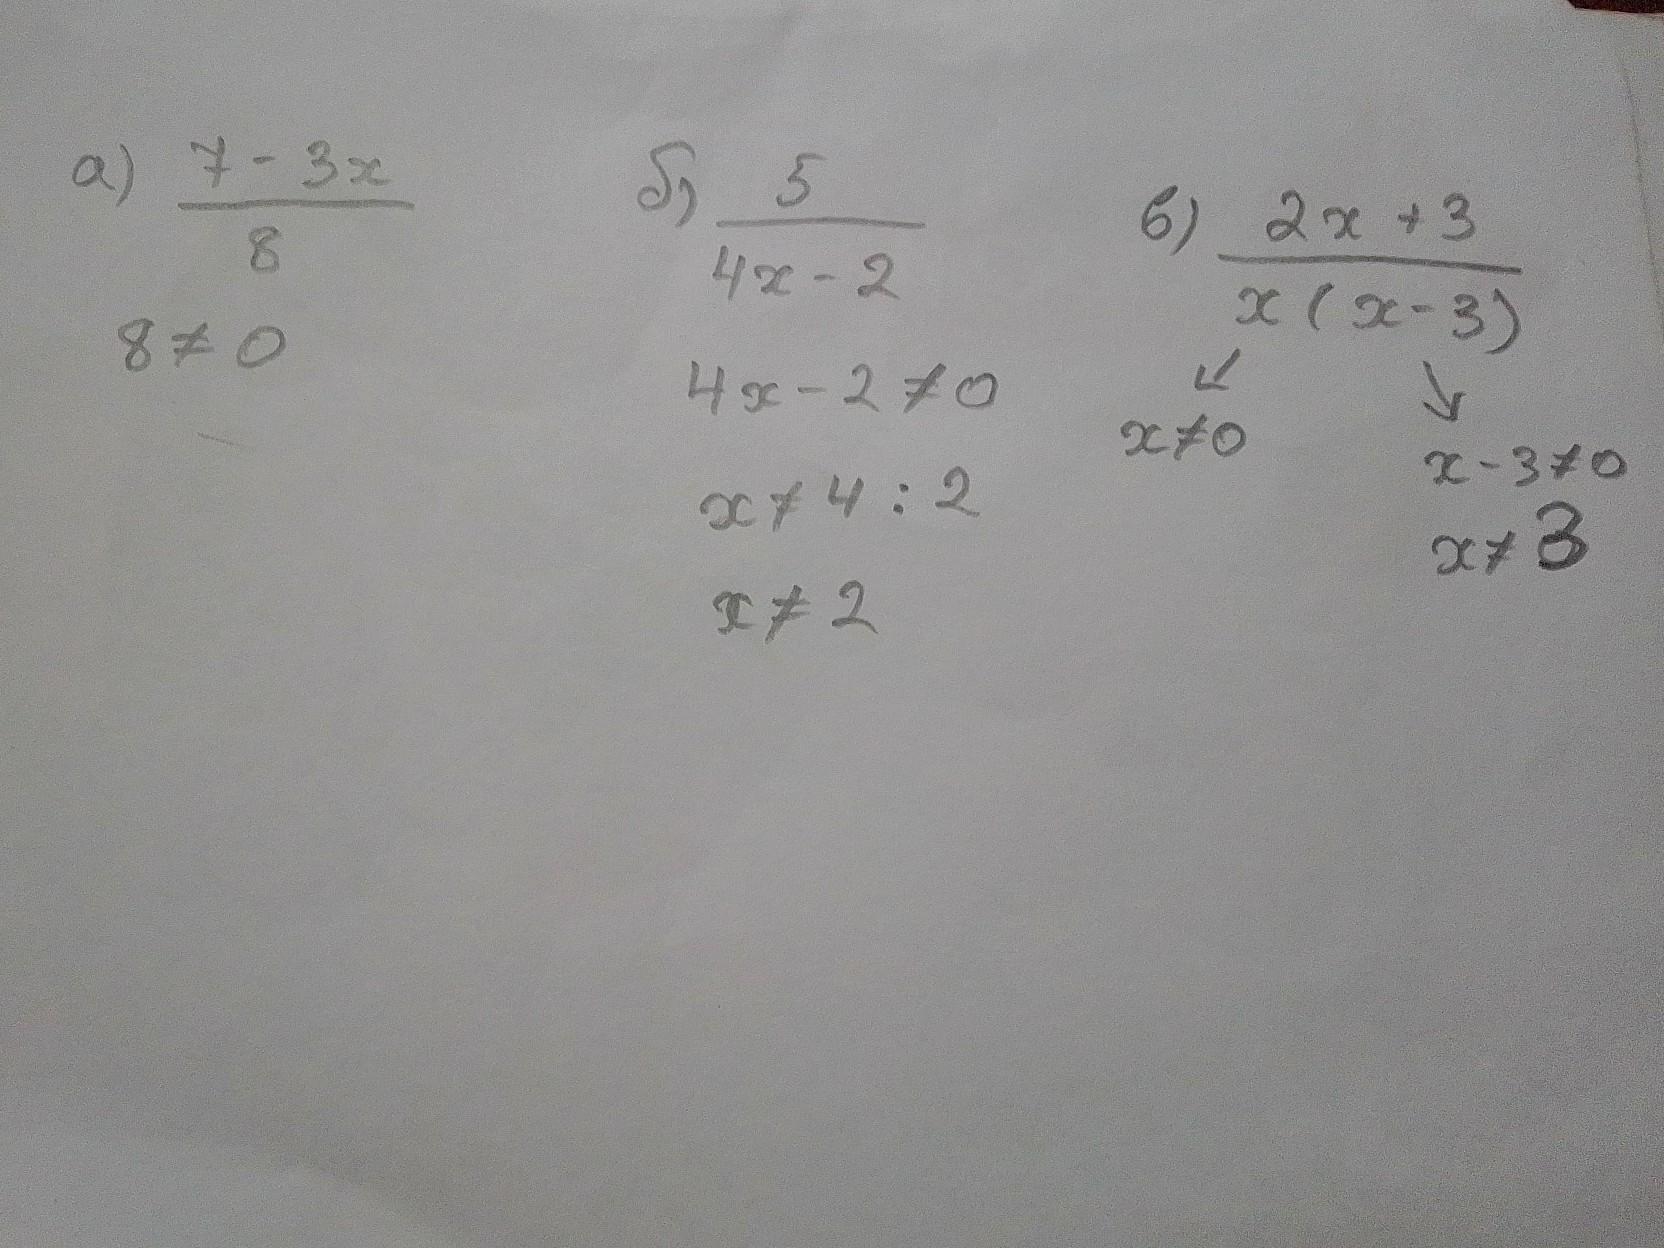 а) 7 - 3x
8
8 ≠ 0
б) 5
4x - 2
4x - 2 ≠ 0
x ≠ 4 : 2
x ≠ 2
в) 2x + 3
x ( x - 3)
↙ ↘
x ≠ 0
x - 3 ≠ 0
x ≠ 3